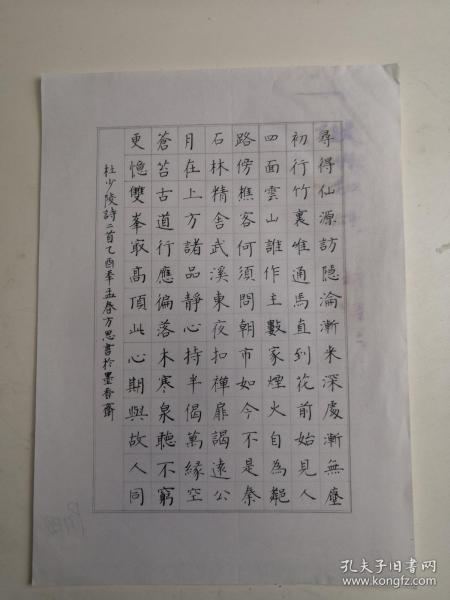 尋得仙源訪隱淪漸來深處漸無塵
初行竹裏唯通馬直到花前始見人
四面雲山誰作主數家煙火自為鄰
路傍樵客何須問朝市如今不是秦
石林精舍武溪東夜扣禪扉謁遠公
月在上方諸品靜心持半偈萬緣空
蒼苔古道行應偏落木寒泉聽不窮
更憶雙峯最高頂此心期與故人同
杜少陵詩二首乙酉年孟春方思書於墨香齋
孔夫子旧书网
www.kongfz.com